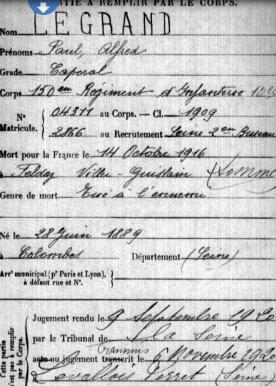 PARTIE À REMPLIR PAR LE CORPS.
Nom LEGRAND
Prénoms Paul, Alfred
Grade Caporal
Corps 150em Régiment d'Infanterie
N° 04311 au Corps. — Cl. 1909
Matricule. 2866 au Recrutement Seine 2em Bureau
Mort pour la France le 14 Octobre 1916
à Ville Guislain (Somme
Genre de mort Tué à l'ennemi
Né le 28 Juin 1889
à Colombes Département (Seine)
Arrt municipal (pr Paris et Lyon), à défaut rue et N°.
Jugement rendu le 9 Septembre 1920
par le Tribunal de La Seine
acte ou jugement transcrit le 6 Novembre 1920
à Levallois Perret (Seine
Cette partie n'est pas à remplir par le Corps.